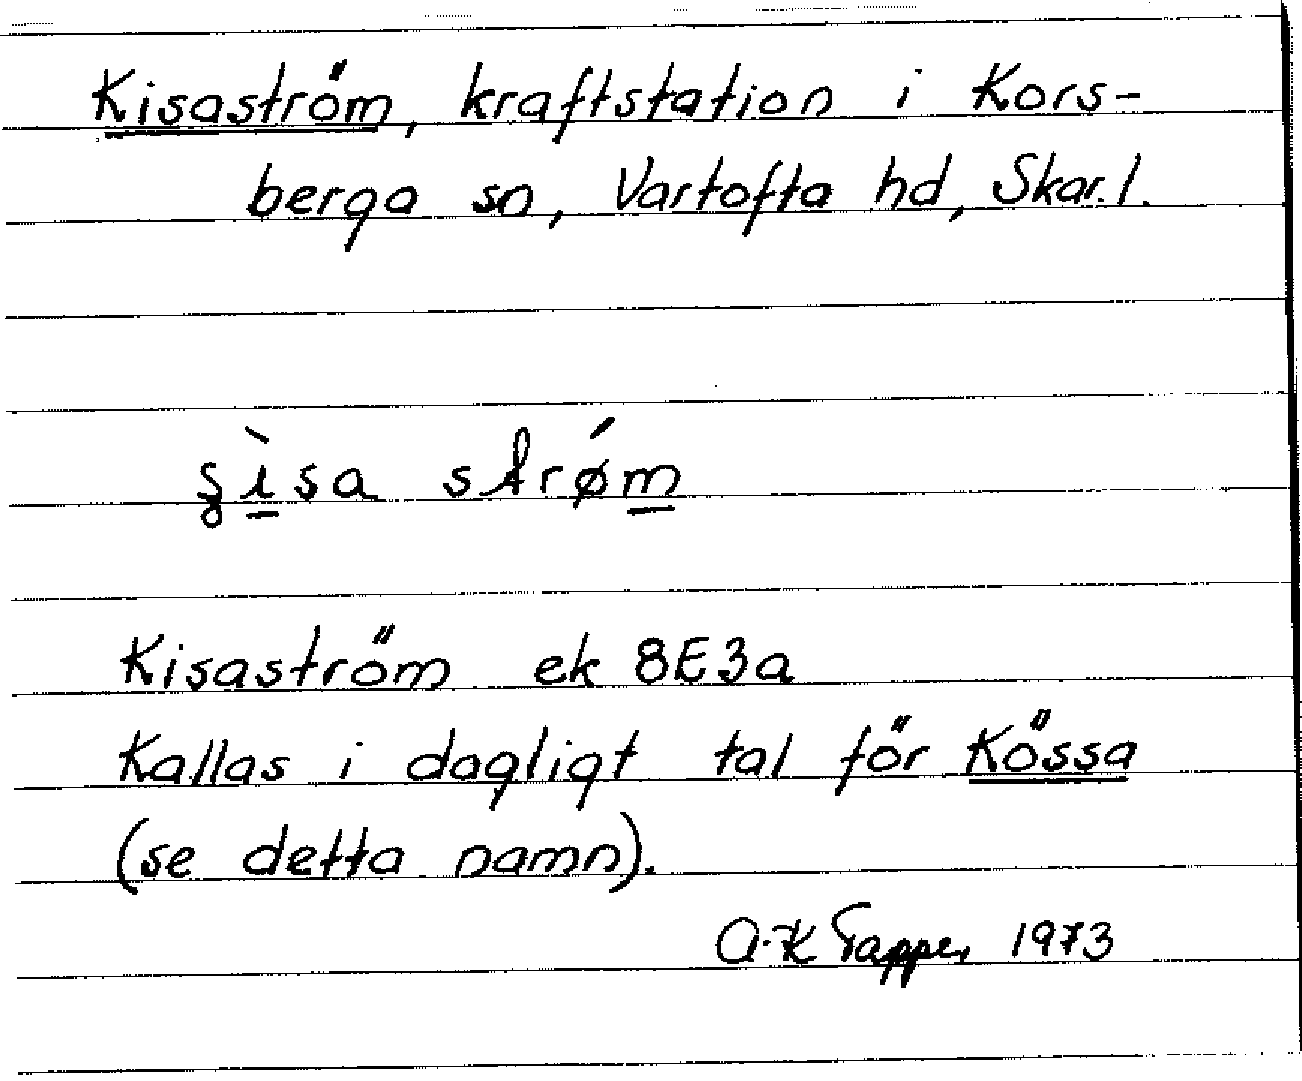 Kisaström, kraftstation i Kors-
berga sn, Vartofta hd, Skar.l.
strǿm
Kisaström ek 8E3a
Kallas i dagligt tal för Kössa
(se detta namn).
A-K 1973